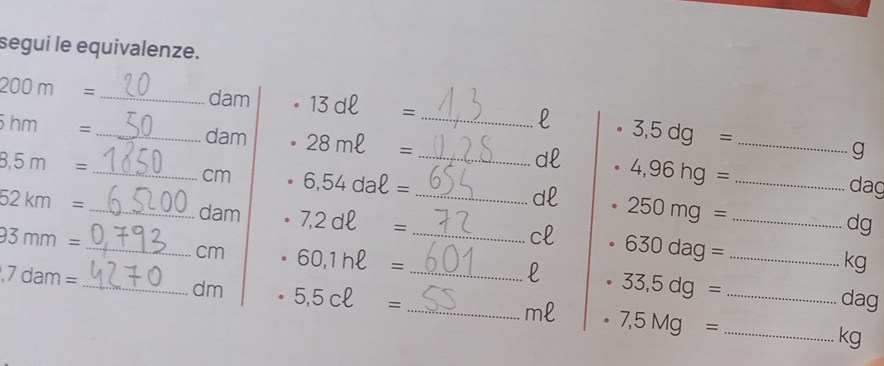 segui le equivalenze.
200 m = 20 dam
5 hm = 50 dam
8,5 m = 1850 cm
52 km = 65200 dam
93 mm = 0,793 cm
,7 dam = 4270 dm
• 13 dl = 1,3 l
• 28 ml = 0,28 dl
• 6,54 dal = 654 dl
• 7,2 dl = 72 cl
• 60,1 hl = 601 l
• 5,5 cl = 55 ml
• 3,5 dg = g
• 4,96 hg = dag
• 250 mg = dg
• 630 dag = kg
• 33,5 dg = dag
• 7,5 Mg = kg